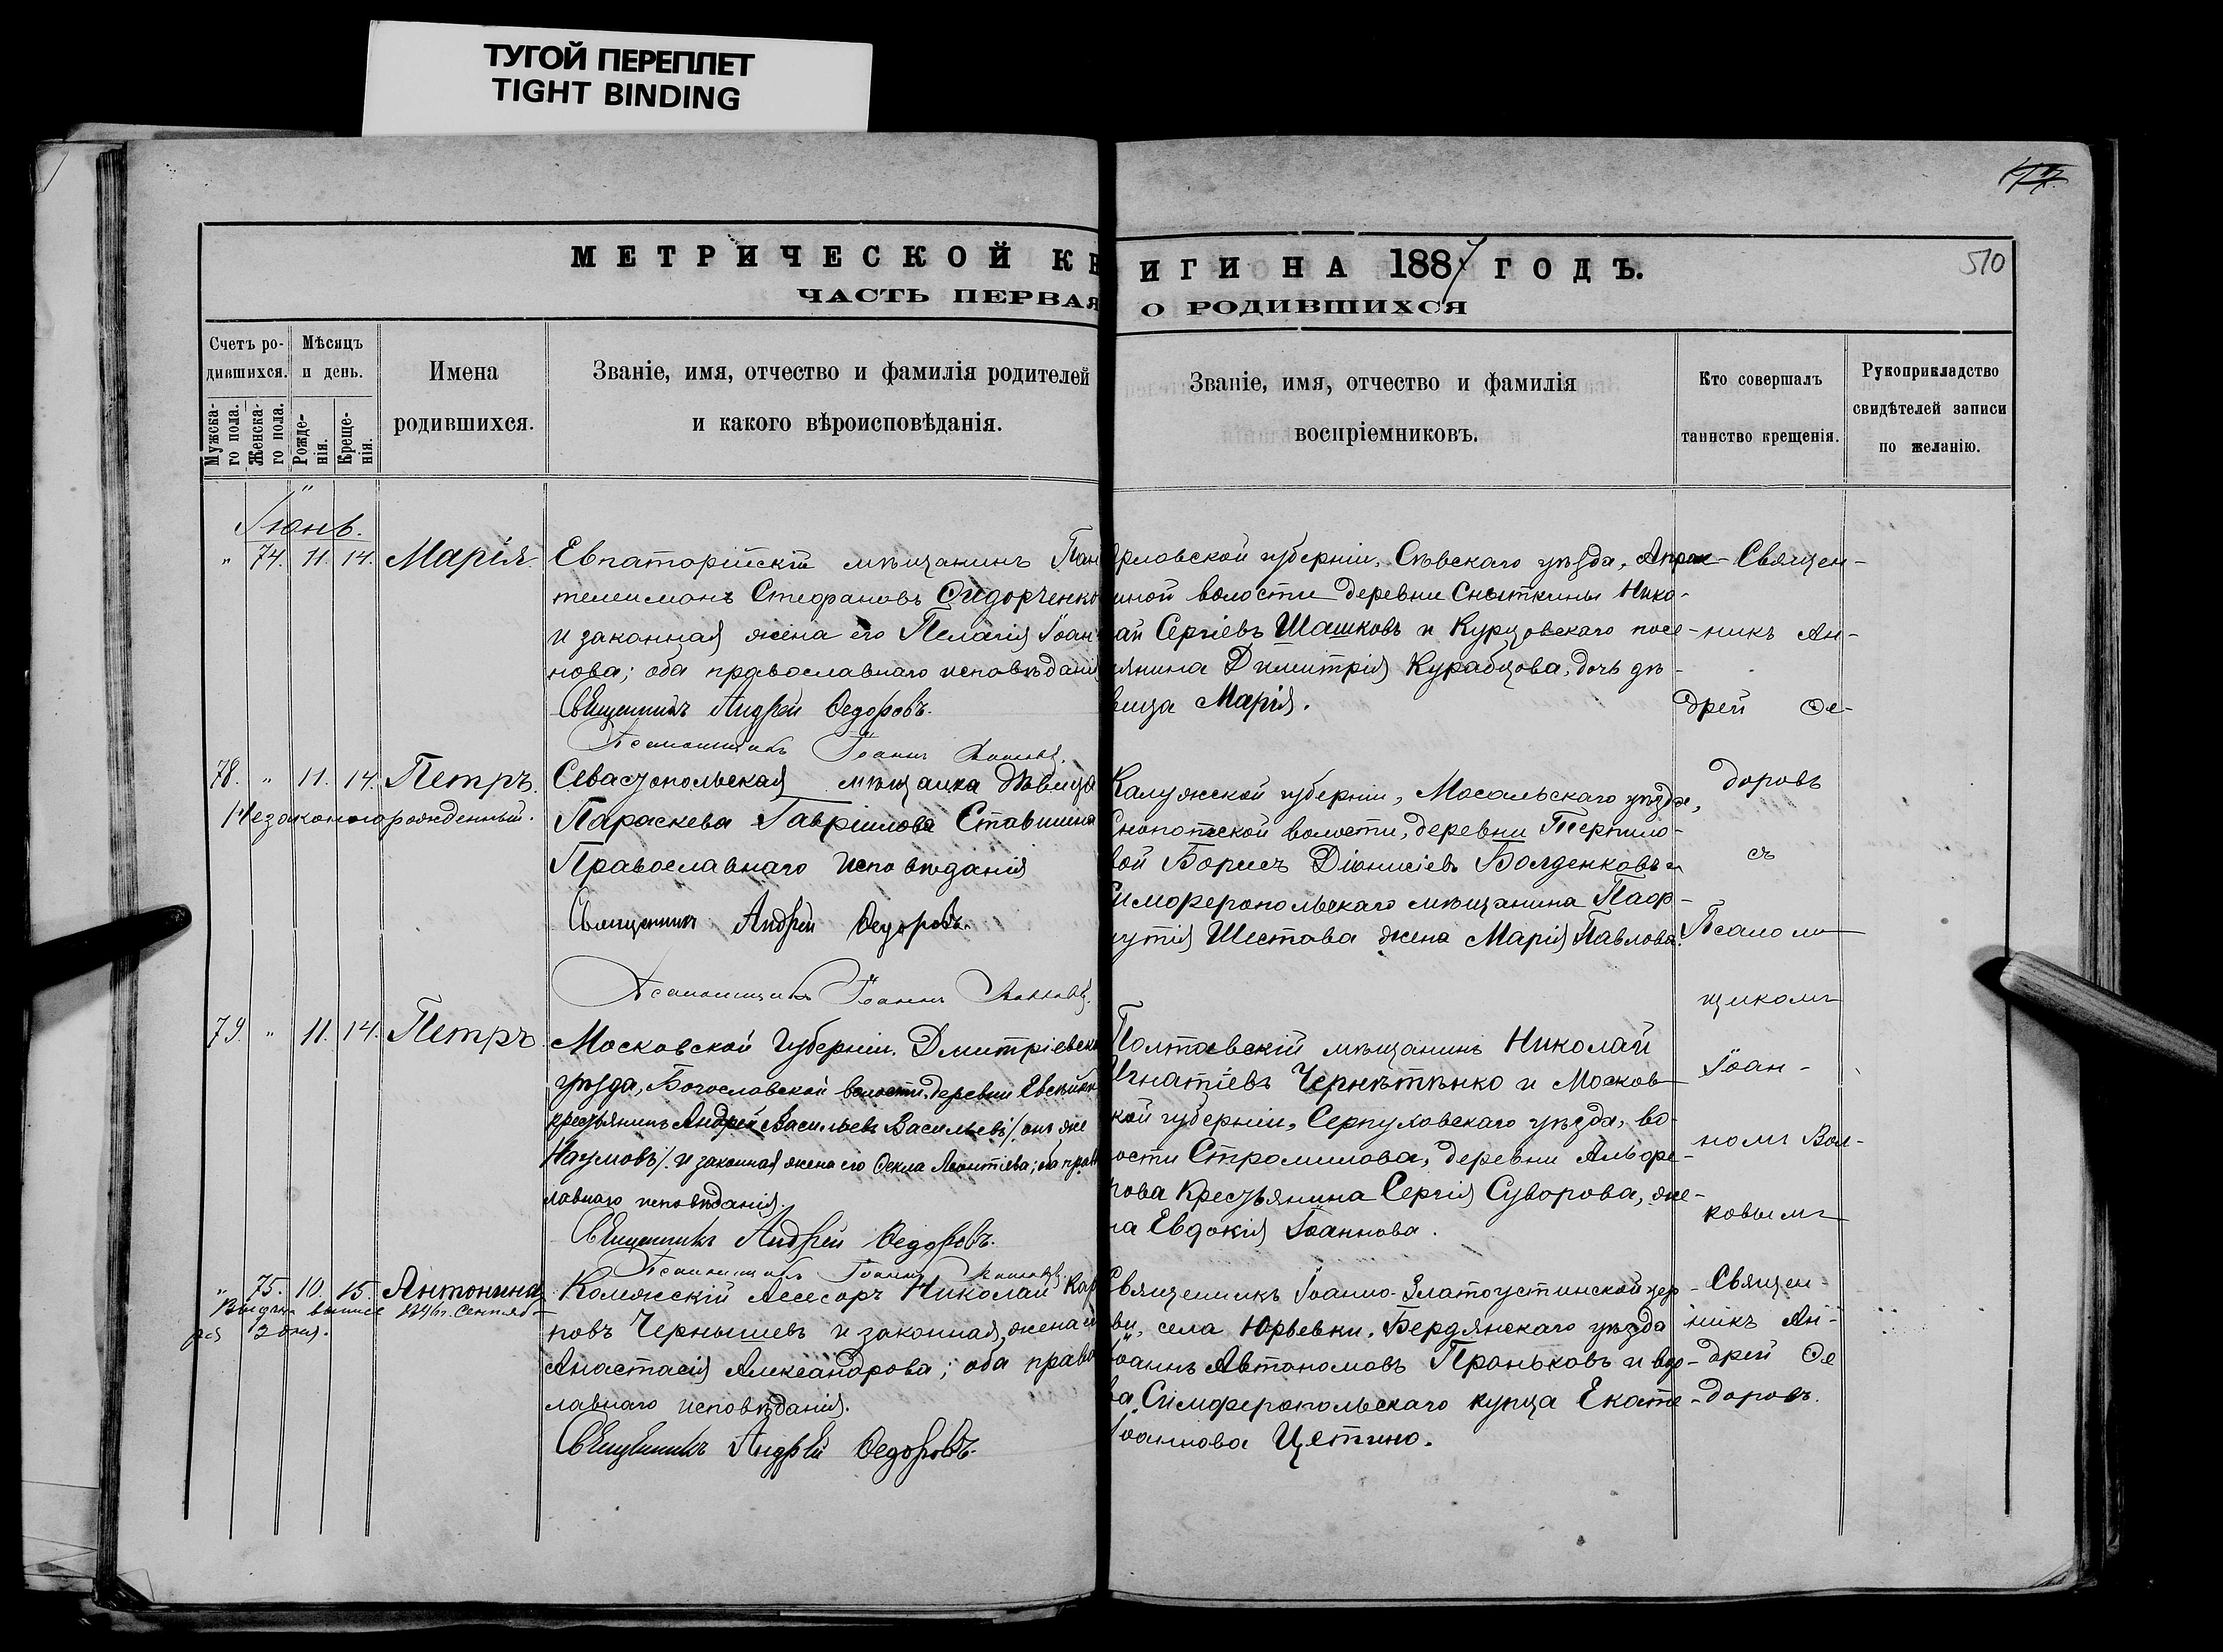 ТУГОЙ ПЕРЕПЛЕТ
TIGHT BINDING
510
МЕТРИЧЕСКОЙ КН
ИГИ НА 1887 ГОДЪ.
ЧАСТЬ ПЕРВАЯ
О РОДИВШИХСЯ
Счетъ ро-
дившихся.
Мужска-
го пола.
Женска-
го пола.
Мѣсяцъ
и день.
Рожде-
нія.
Креще-
нія.
Имена
родившихся.
Званіе, имя, отчество и фамилія родителей
и какого вѣроисповѣданія.
Званіе, имя, отчество и фамилія
воспріемниковъ.
Кто совершалъ
таинство крещенія.
Рукоприкладство
свидѣтелей записи
по желанію.
Іюнь.
" 74. 11. 14. Марія.
Евпаторійскій мѣщанинъ Пан
телеимонъ Стефановъ Сидорченко
и законная жена его Пелагія Іоан
нова; оба православнаго исповѣданія
Священникъ Андрей Ѳедоровъ.
Псаломщикъ Іоаннъ
рловской губерніи, Сѣвскаго уѣзда,
иной волости деревни Сныткины Нико-
ай Сергіевъ Шашковъ и Курцовскаго посе-
янина Димитрія Курабцова, дочь дѣ-
вица Марія.
78. " 11. 14. Петръ.
Незаконнорожденный.
Севастопольская мѣщанка дѣвица
Параскева Гавріилова Ставшина
Православнаго исповѣданія
Священникъ Андрей Ѳедоровъ.
Псаломщикъ Іоаннъ
Калужской губерніи, Мосальскаго уѣзда,
нопотской волости, деревни Терпило-
вой Борисъ Діонисіевъ Болденковъ и
имферопольскаго мѣщанина Паф-
нутія Шестова жена Марія Павлова.
79. " 11. 14. Петръ.
Московской Губерніи. Дмитріевска
уѣзда, Богословской волости, деревни
крестьянинъ Андрей Васильевъ Васильевъ /. онъ же
Наумовъ /. и законная жена его Ѳекла Леонтіева; оба прав
лавнаго исповѣданія.
Священникъ Андрей Ѳедоровъ.
Псаломщикъ Іоаннъ
Полтавскій мѣщанинъ Николай
Игнатіевъ Чернѣтѣнко и Москов-
кой губерніи, Серпуховскаго уѣзда, во-
ости Стромилова, деревни Алфе-
рова крестьянина Сергія Суворова, же-
на Евдокія Іоаннова.
" 75. 10. 15. Антонина
Выдана выпись Сентяб-
ря 2 дня.
Колежскій Асесоръ Николай Кар
повъ Чернышевъ и законная жена е
Анастасія Александрова; оба право
лавнаго исповѣданія.
Священникъ Андрей Ѳедоровъ.
Священникъ Іоанно-Златоустинской цер-
ви, села Юрьевки, Бердянскаго уѣзда
Іоаннъ Автономовъ Праньковъ и вдо-
ва Симферопольскаго купца Екате-
Іоаннова Цетино.
Священ-
никъ Ан-
дрей Ѳе-
доровъ
съ
Псалом-
щикомъ
Іоан-
номъ Вол-
ковымъ
Священ-
никъ Ан-
дрей Ѳе
доровъ.